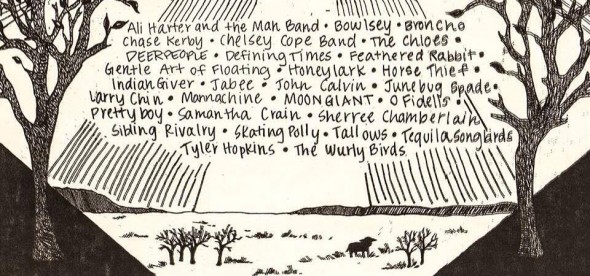 Ali Harter and the Mah Band • Bowlsey • Broncho
Chase Kerby • Chelsey Cope Band • The Chloes •
DEERPEOPLE • Defining Times • Feathered Rabbit •
Gentle Art of Floating • Honeylark • Horse Thief •
Indian Giver • Jabee • John Calvin • Junebug Spade •
Larry Chin • Mannachine • MOONGIANT • O Fidelis •
Prettyboy • Samantha Crain • Sherree Chamberlain
Sibling Rivalry • Skating Polly • Tallows • Tequila Songbirds
Tyler Hopkins • The Wurly Birds